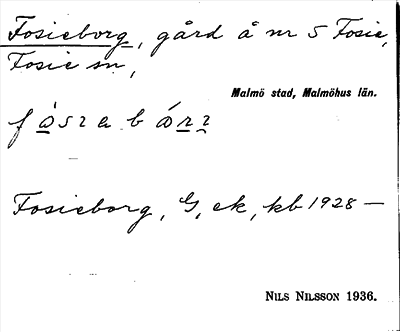 Fosieborg, gård å nr 5 Fosie,
Fosie sn,
Malmö stad, Malmöhus län.
Fosieborg, G, ek, kb 1928 —
NILS NILSSON 1936.